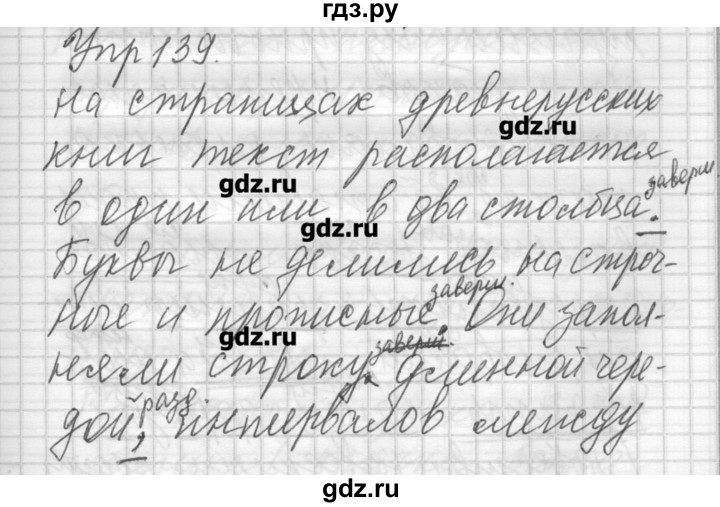 гдз.ру
Упр 139.
на страницах древнерусских
gdz.ru
книг текст располагается
gdz.ru
заверш.
в один или в два столбца.
gdz.ru
Буквы не делились на строч-
заверш.
ные и прописные. Они запол-
gdz.ru
заверш.
няли строку длинной чере-
разд.
дой, интервалов между
gdz.ru